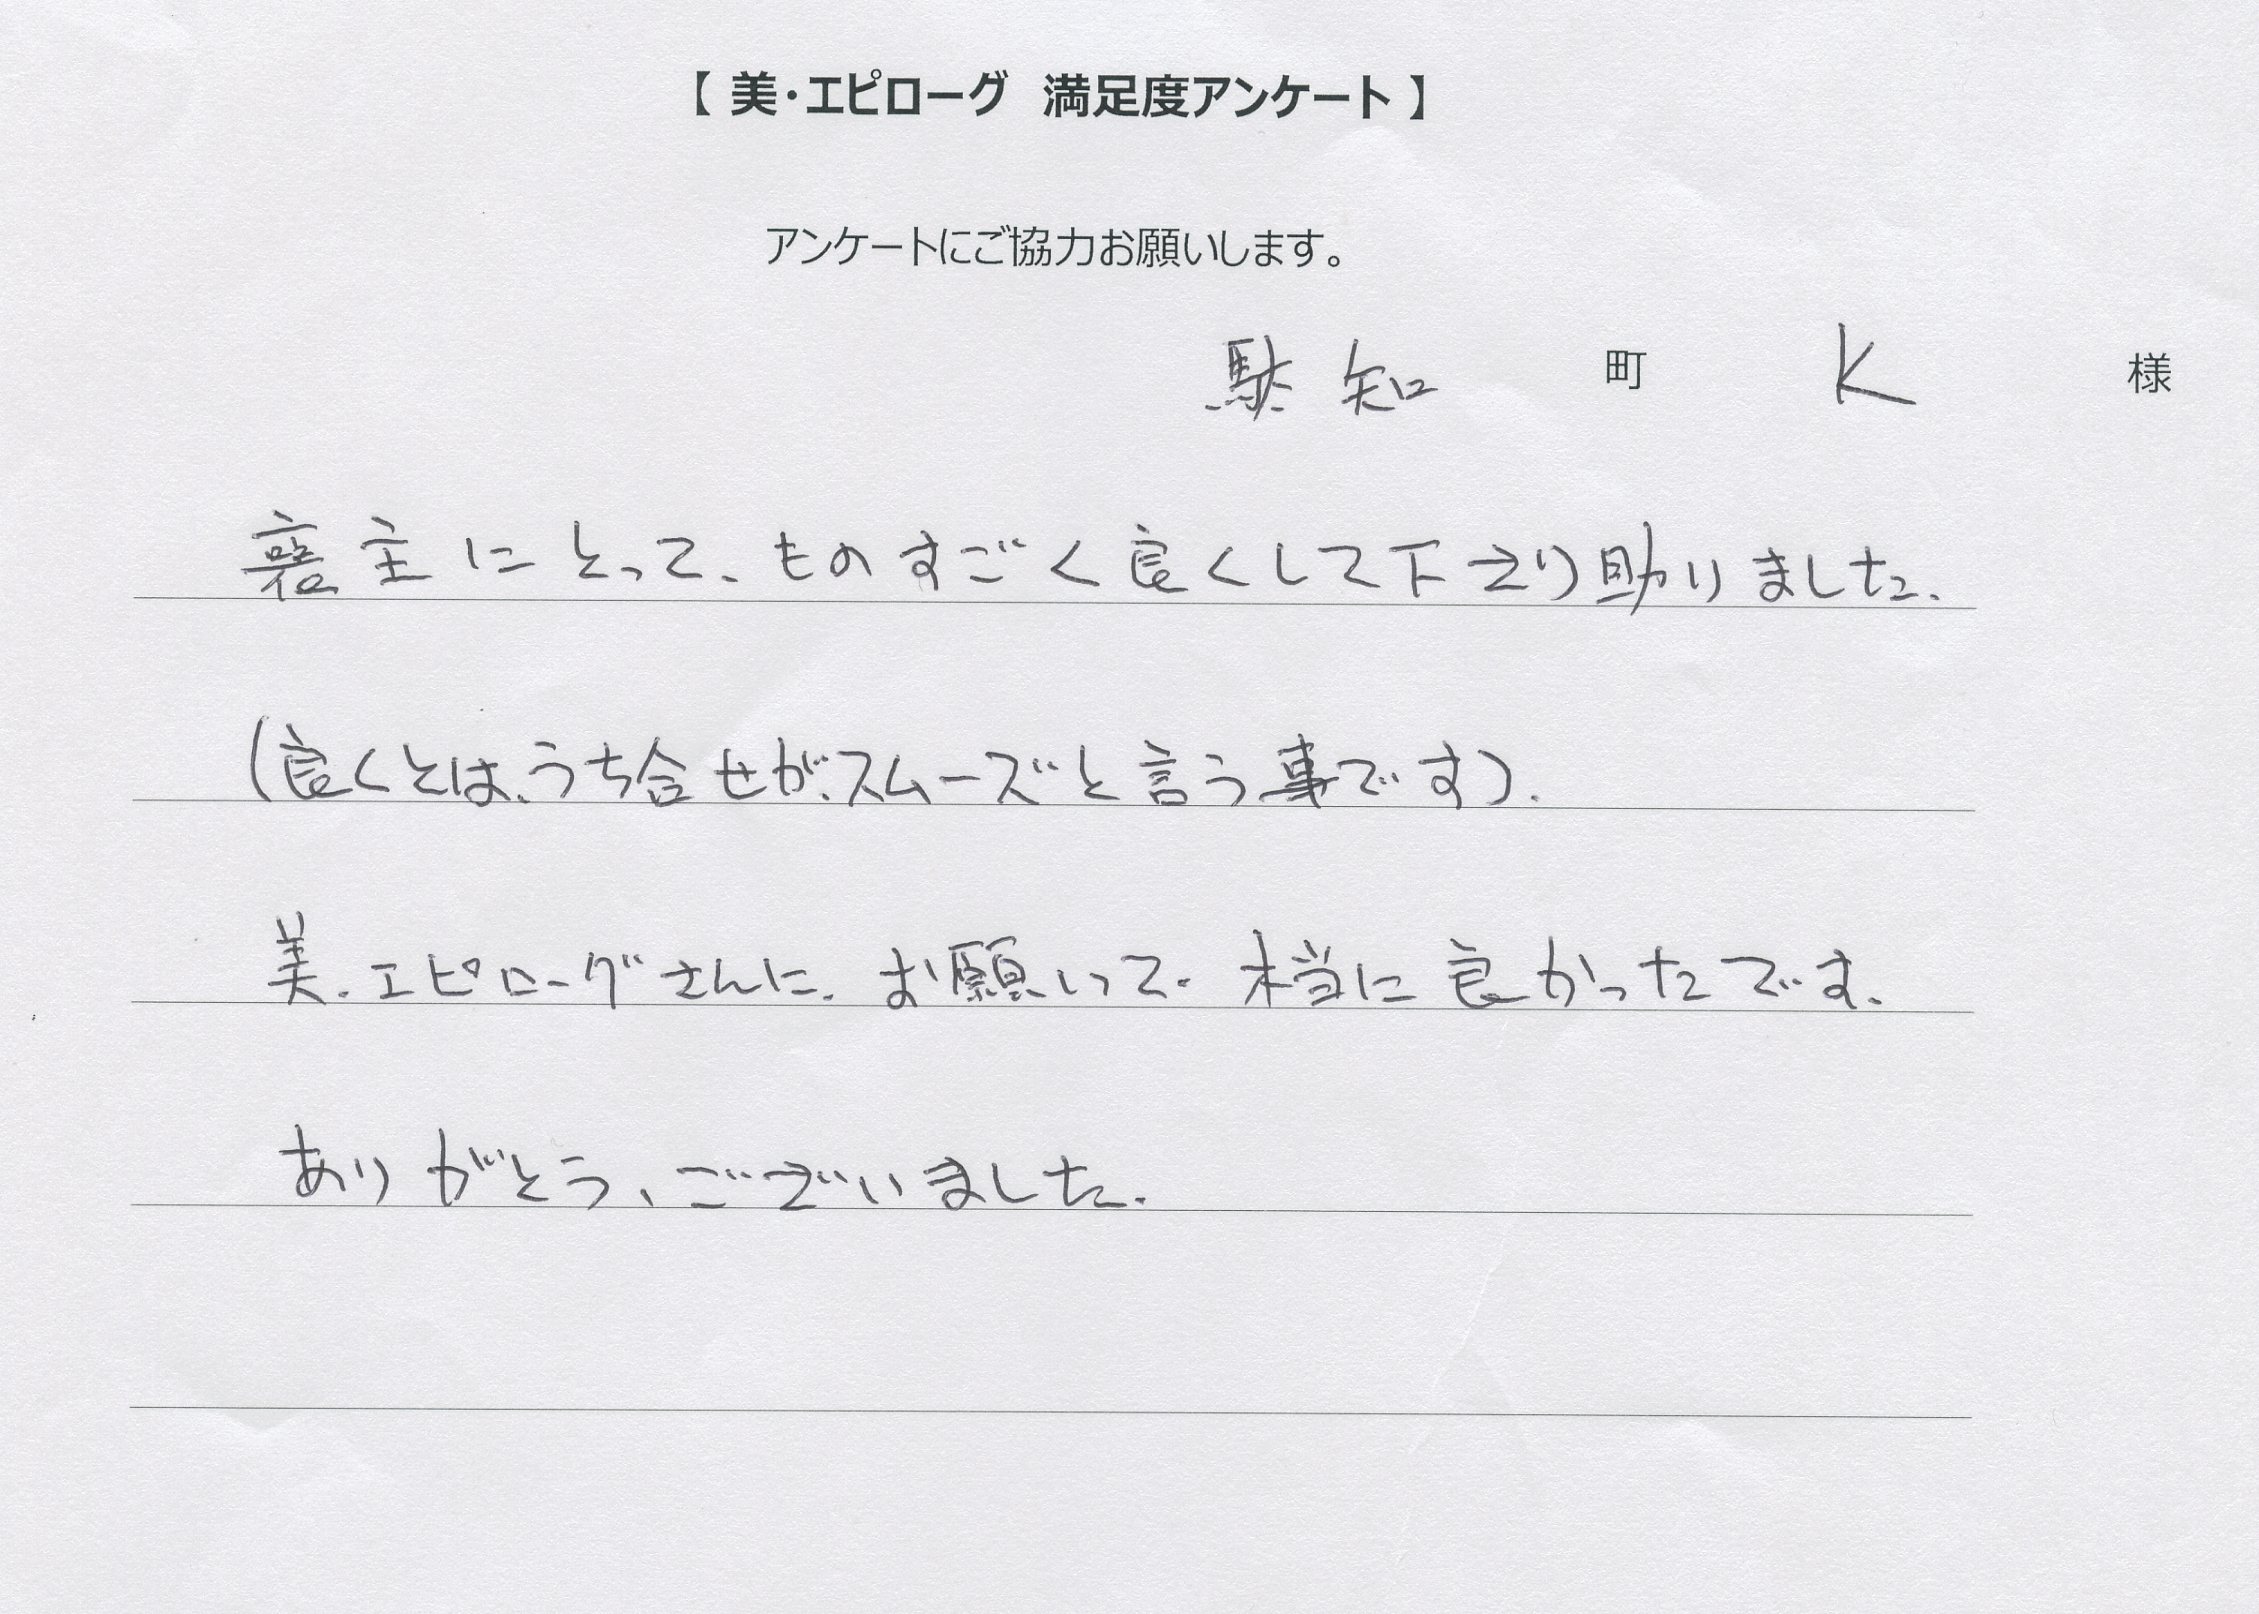 【 美・エピローグ 満足度アンケート 】
アンケートにご協力お願いします。
駄知 町 K 様
喪主にとって、ものすごく良くして下さり助りました。
(良くとは、うち合せが、スムーズと言う事です)。
美・エピローグさんに、お願いって、本当に良かったです。
ありがとう、ございました。